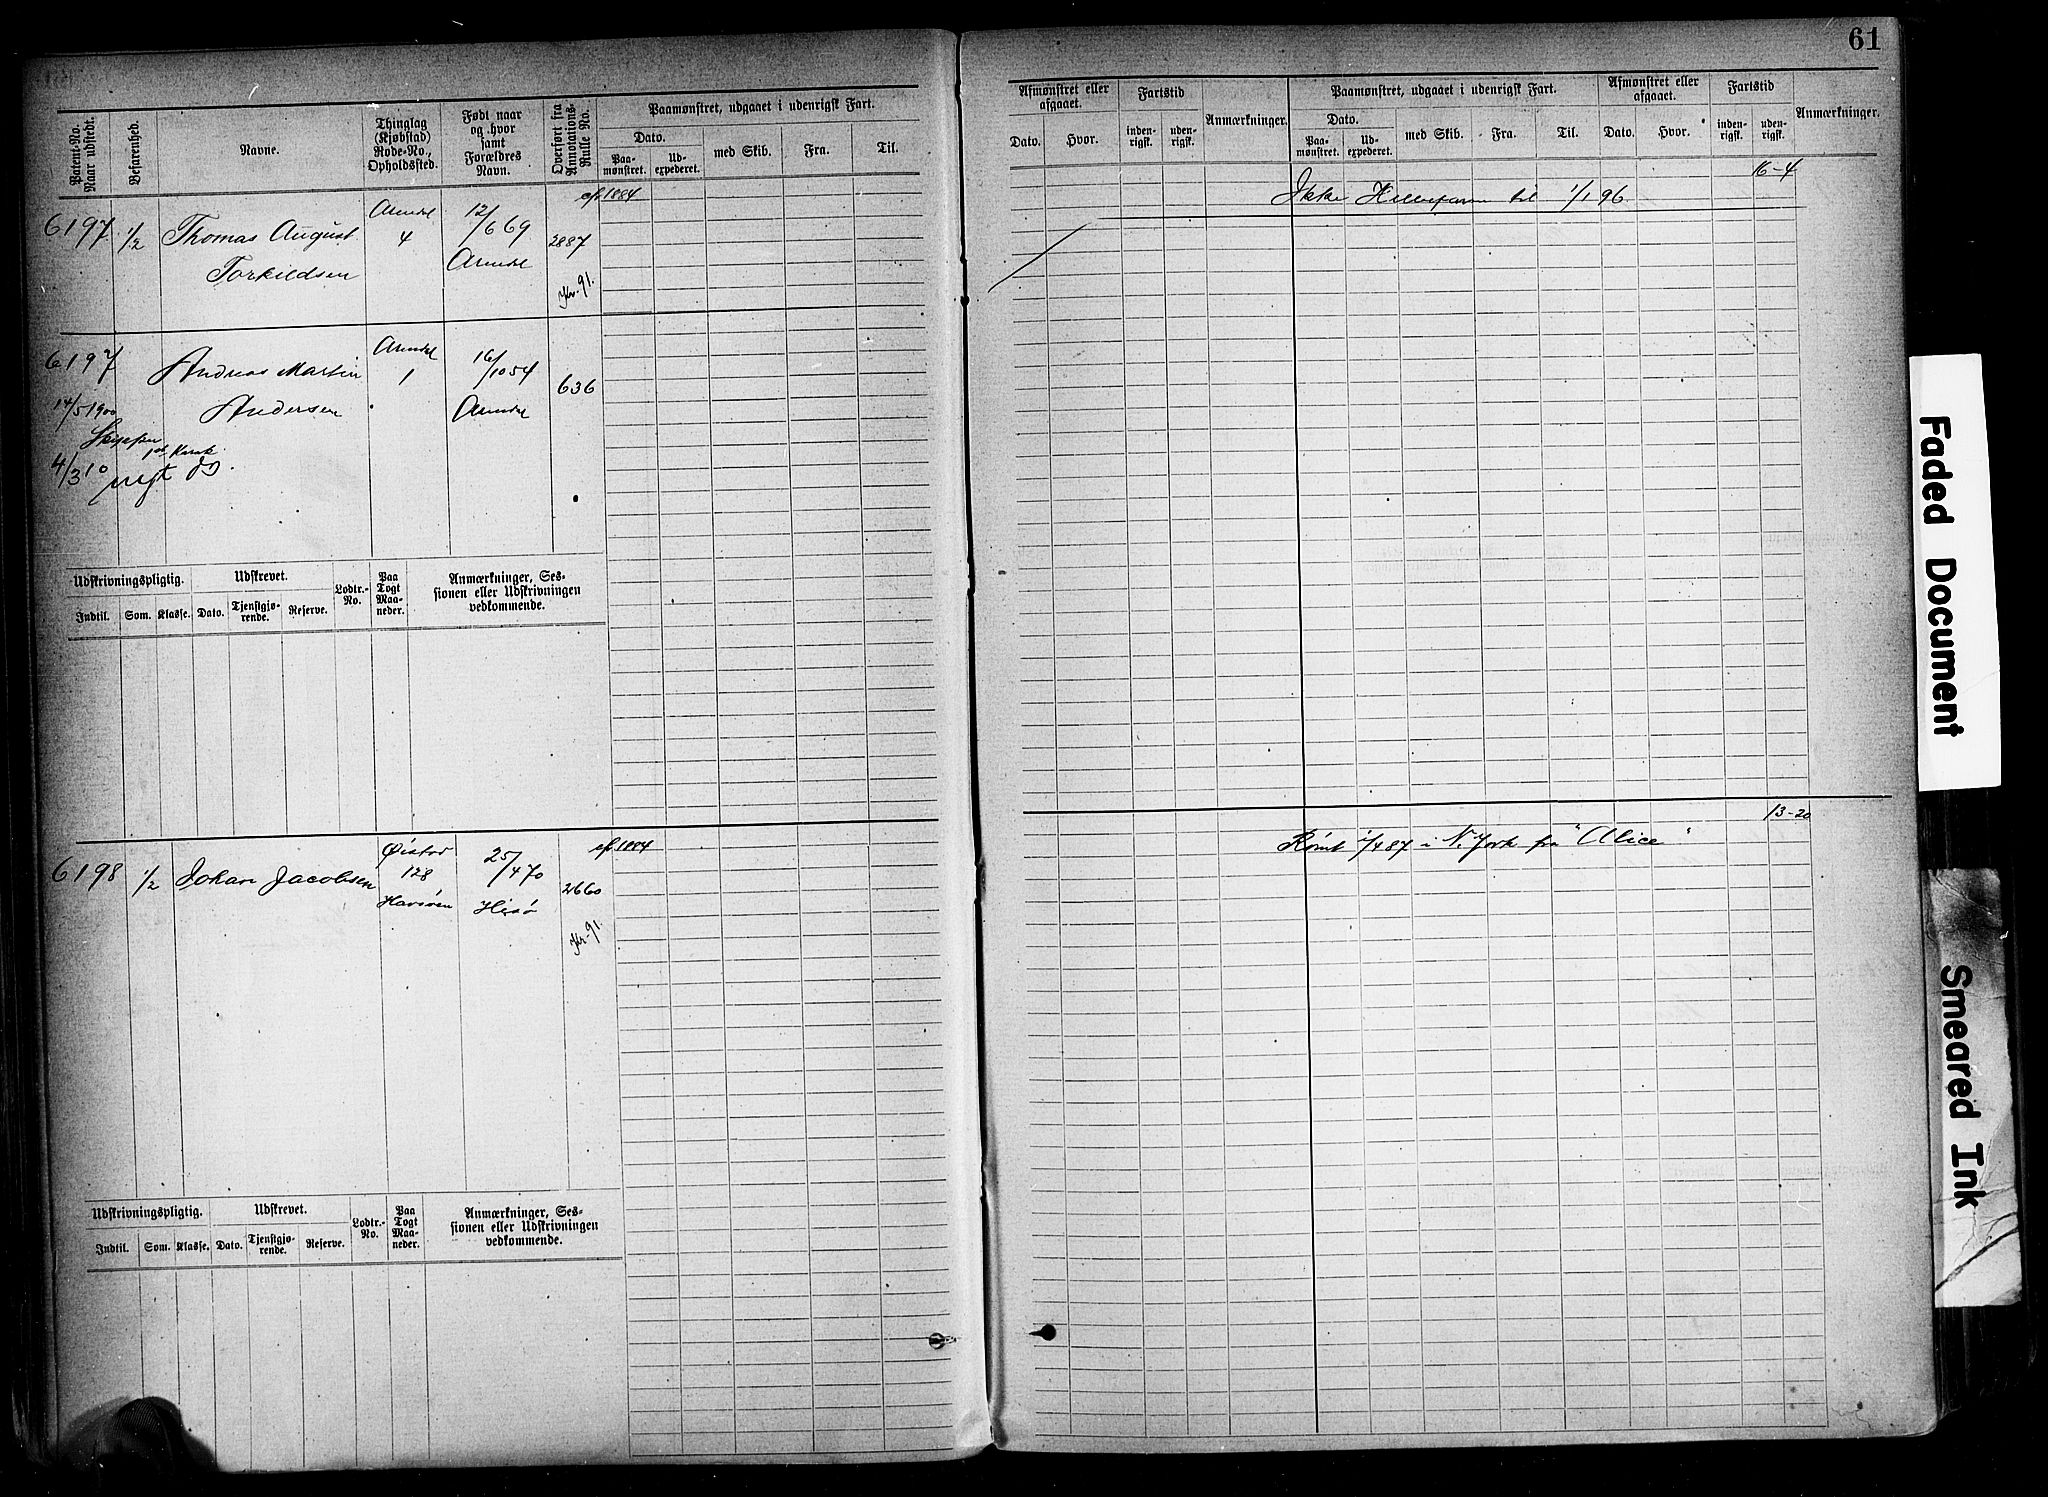 61
Patent-No. Naar udstedt.
Befarenhed.
Navne.
Thinglag (Kjøbstad) Rode-No., Opholdssted.
Født naar og hvor samt Forældres Navn.
Overført fra Annotations-Rulle No.
Paamønstret, udgaaet i udenrigsk Fart.
Dato.
Paa-mønstret.
Ud-expederet.
med Skib.
Fra.
Til.
Afmønstret eller afgaaet.
Dato.
Hvor.
Fartstid
inden-rigsk.
uden-rigsk.
Anmærkninger.
Paamønstret, udgaaet i udenrigsk Fart.
Dato.
Paa-mønstret.
Ud-expederet.
med Skib.
Fra.
Til.
Afmønstret eller afgaaet.
Dato.
Hvor.
Fartstid
inden-rigsk.
uden-rigsk.
Anmærkninger.
6197 1/2 Thomas August Arendal 12/6 69 1884
Torkildsen 4 Arendal 2887
91.
16-4
Ikke til 1/1 96
6197 Andreas Martin Arendal 16/10 54 636
14/5 1900 Andersen 1 Arendal
4/3 10
Udskrivningspligtig.
Udskrevet.
Lodtr.-No.
Paa Togt Maa-neder.
Anmærkninger, Ses-sionen eller Udskrivningen vedkommende.
Indtil.
Som.
Klasse.
Dato.
Tjenstgjø-rende.
Reserve.
6198 1/2 Johan Jacobsen Øistad 25/4 70 1884
128 Hisø 2660
Havsøen 91.
13-20
Rømt 1/4 87 i N. York fra "Alice"
Udskrivningspligtig.
Udskrevet.
Lodtr.-No.
Paa Togt Maa-neder.
Anmærkninger, Ses-sionen eller Udskrivningen vedkommende.
Indtil.
Som.
Klasse.
Dato.
Tjenstgjø-rende.
Reserve.
Faded Document
Smeared Ink